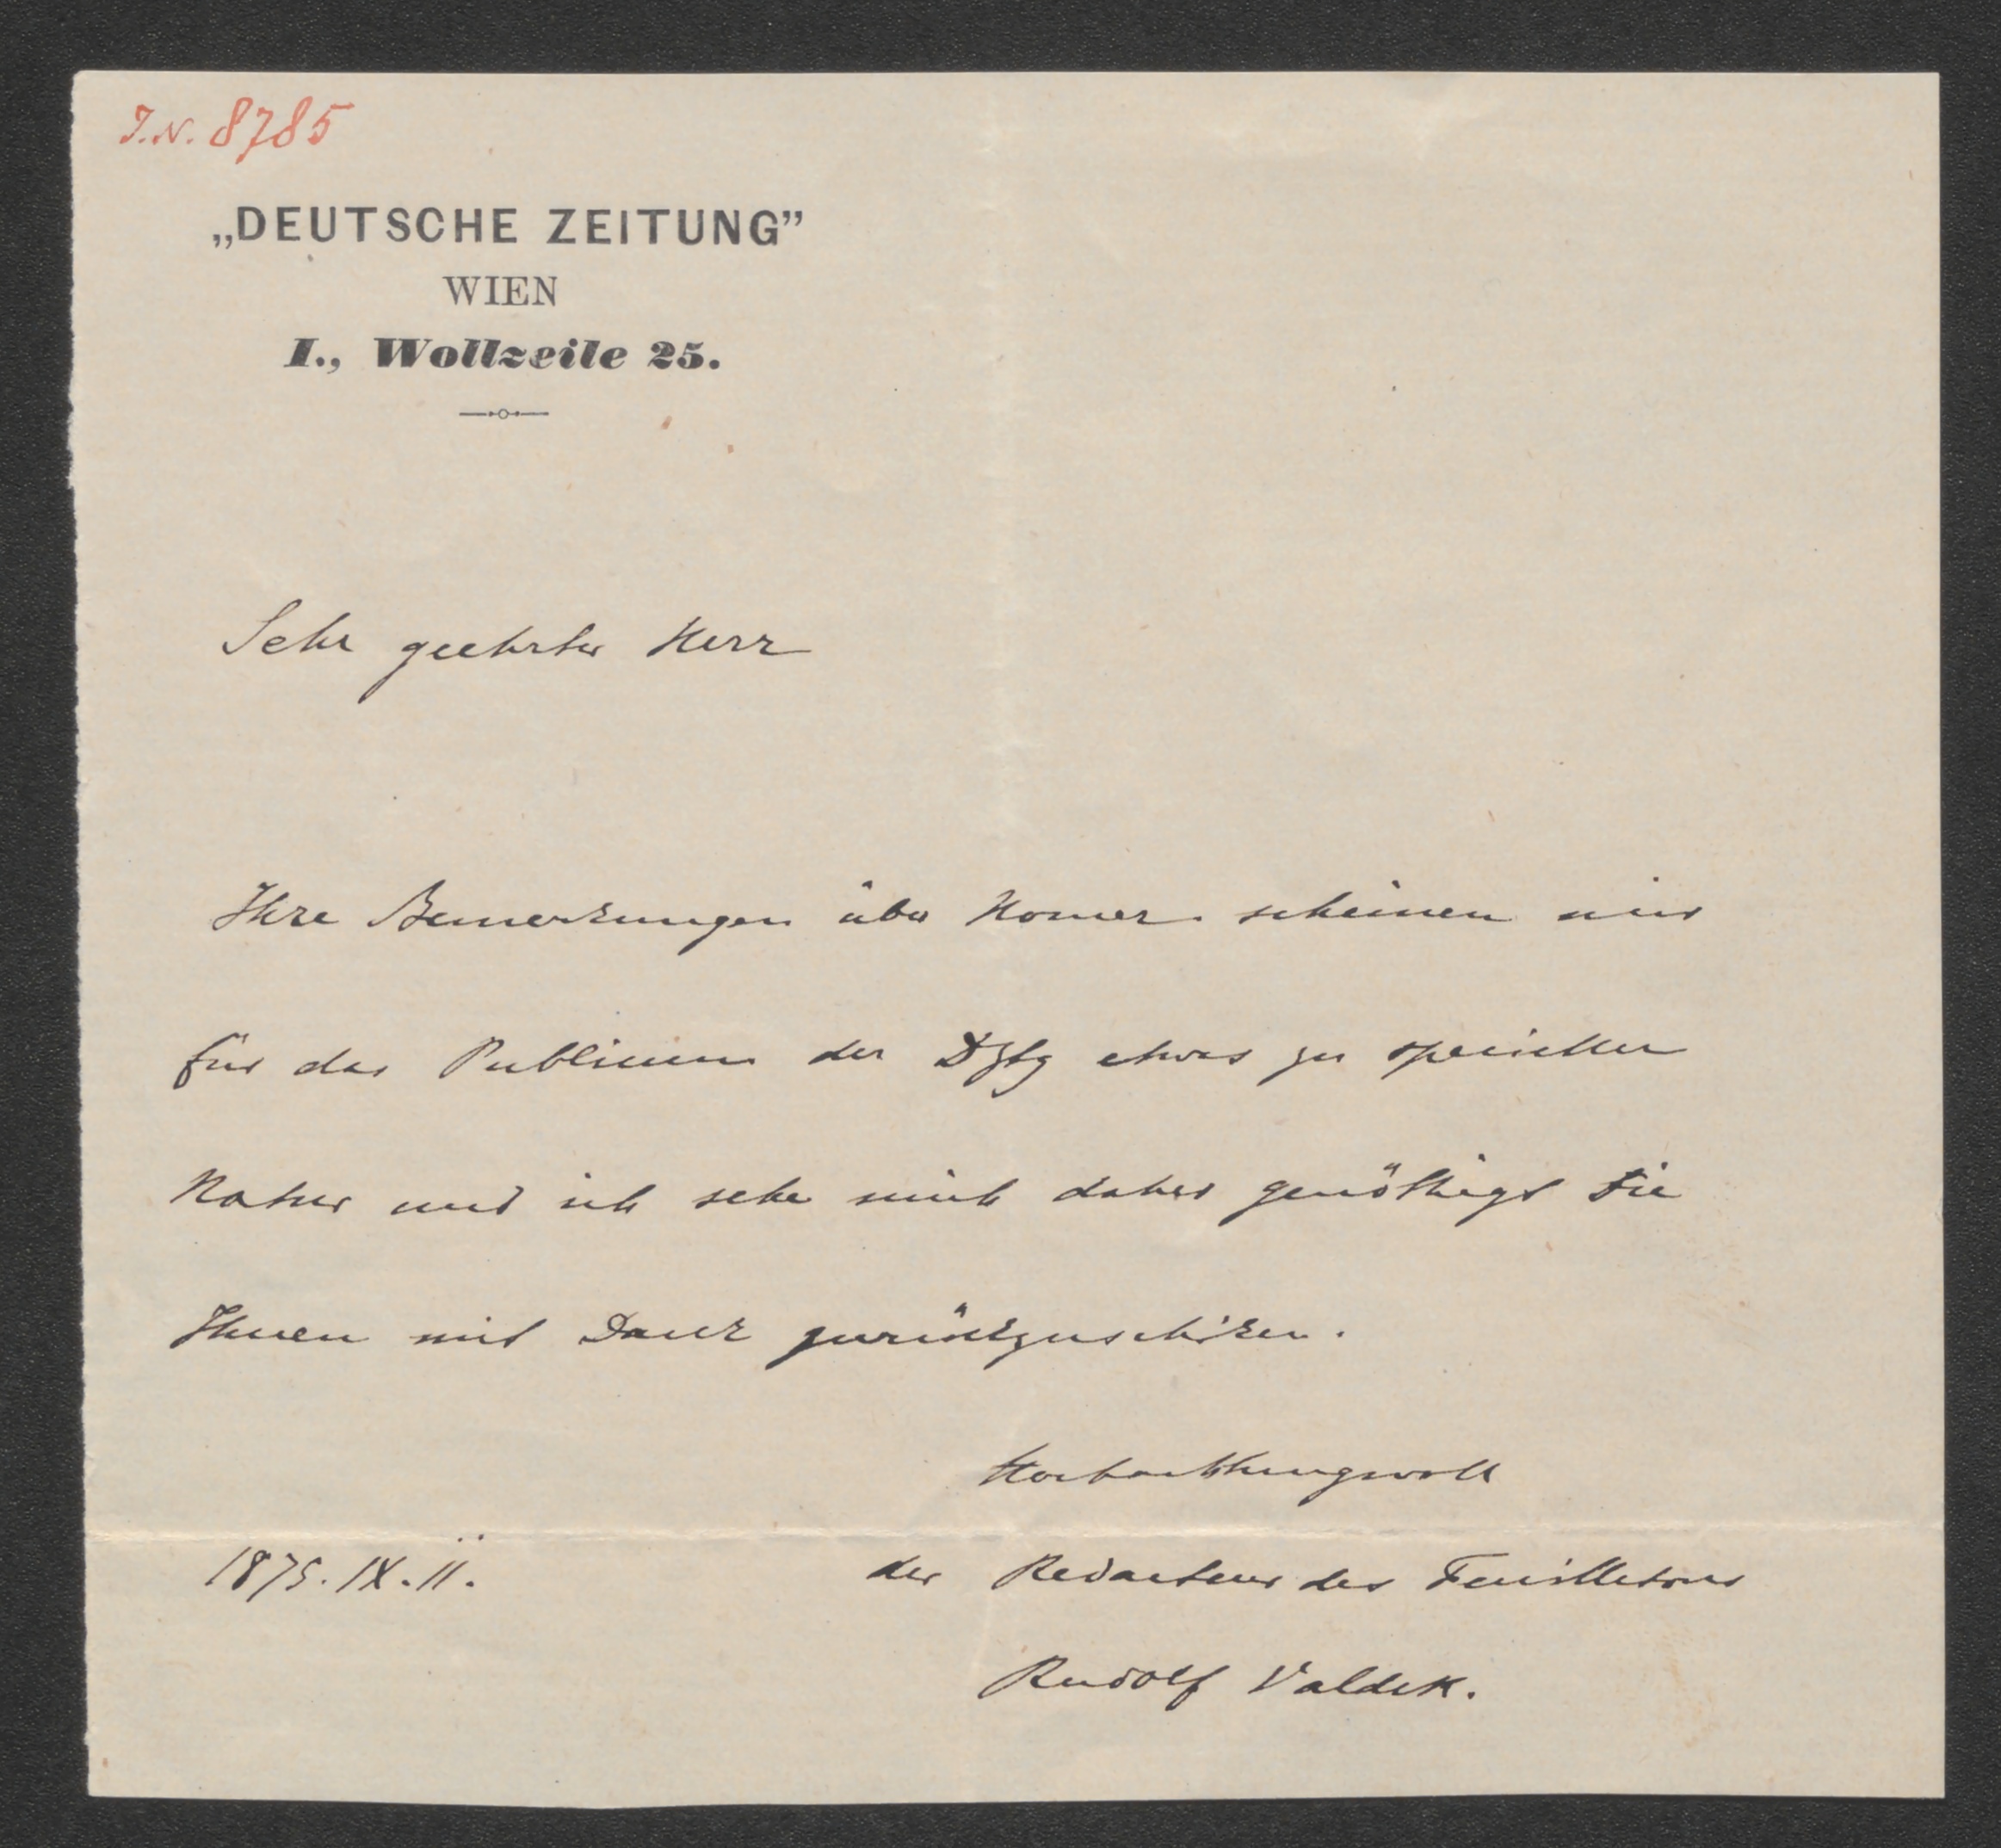 J.N. 8785
„DEUTSCHE ZEITUNG”
WIEN
I., Wollzeile 25.
Sehr geehrter Herr
Ihre Bemerkungen über Homer scheinen mir
für das Publicum der DZtg etwas zu specieller
Natur und ich sehe mich daher genöthigt sie
Ihnen mit Dank zurückzuschiken.
Hochachtungsvoll
1875. IX. 11. der Redacteur des Feuilletons
Rudolf Valdek.